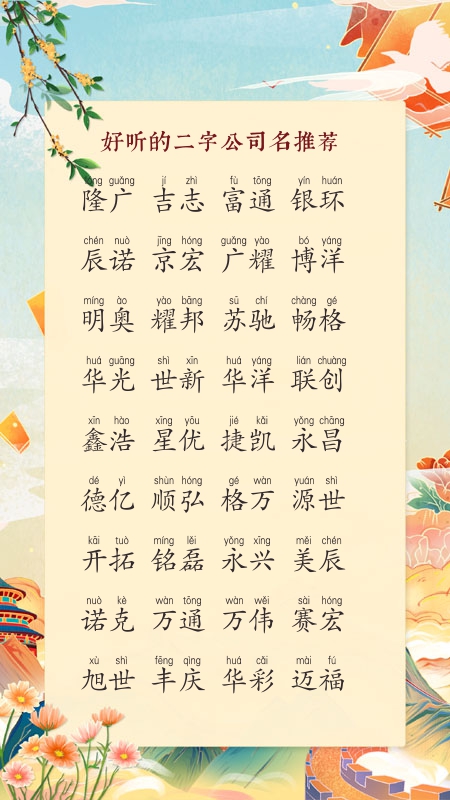 好听的二字公司名推荐
lóng guǎng jí zhì fù tōng yín huán
隆广 吉志 富通 银环
chén nuò jīng hóng guǎng yào bó yáng
辰诺 京宏 广耀 博洋
míng ào yào bāng sū chí chàng gé
明奥 耀邦 苏驰 畅格
huá guāng shì xīn huá yáng lián chuàng
华光 世新 华洋 联创
xīn hào xīng yōu jié kǎi yǒng chāng
鑫浩 星优 捷凯 永昌
dé yì shùn hóng gé wàn yuán shì
德亿 顺弘 格万 源世
kāi tuò míng lěi yǒng xīng měi chén
开拓 铭磊 永兴 美辰
nuò kè wàn tōng wàn wěi sài hóng
诺克 万通 万伟 赛宏
xù shì fēng qìng huá cǎi mài fú
旭世 丰庆 华彩 迈福